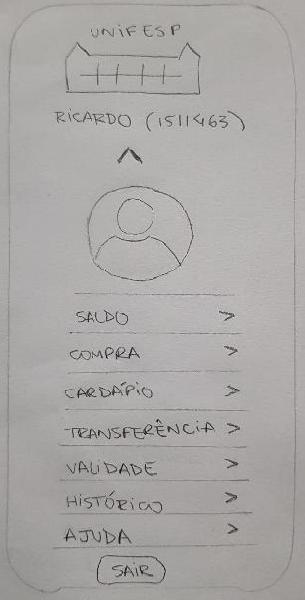 UNIFESP
RICARDO (1511463)
SALDO >
COMPRA >
CARDÁPIO >
TRANSFERÊNCIA >
VALIDADE >
HISTÓRICO >
AJUDA >
SAIR